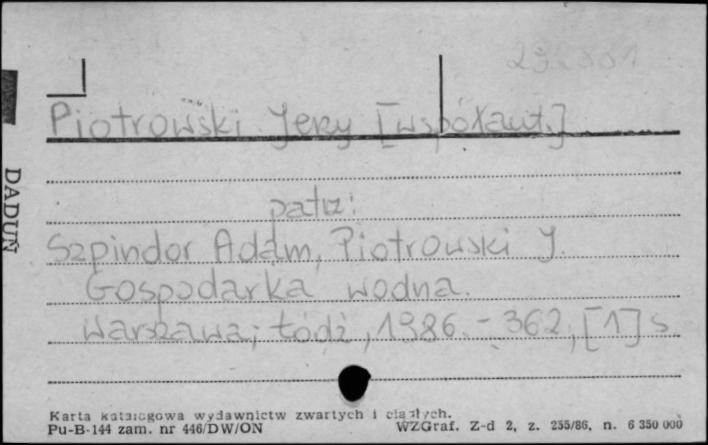 Piotrowski Jerzy [współaut.]
patrz:
Szpindor Adam, Piotrowski J.
Gospodarka wodna.
Warszawa; Łódź, 1986. - 362, [1] s.
DADUŃ
Karta katalogowa wydawnictw zwartych i ciągłych.
Pu-B-144 zam. nr 446/DW/ON WZGraf. Z-d 2, z. 255/86, n. 6 350 000